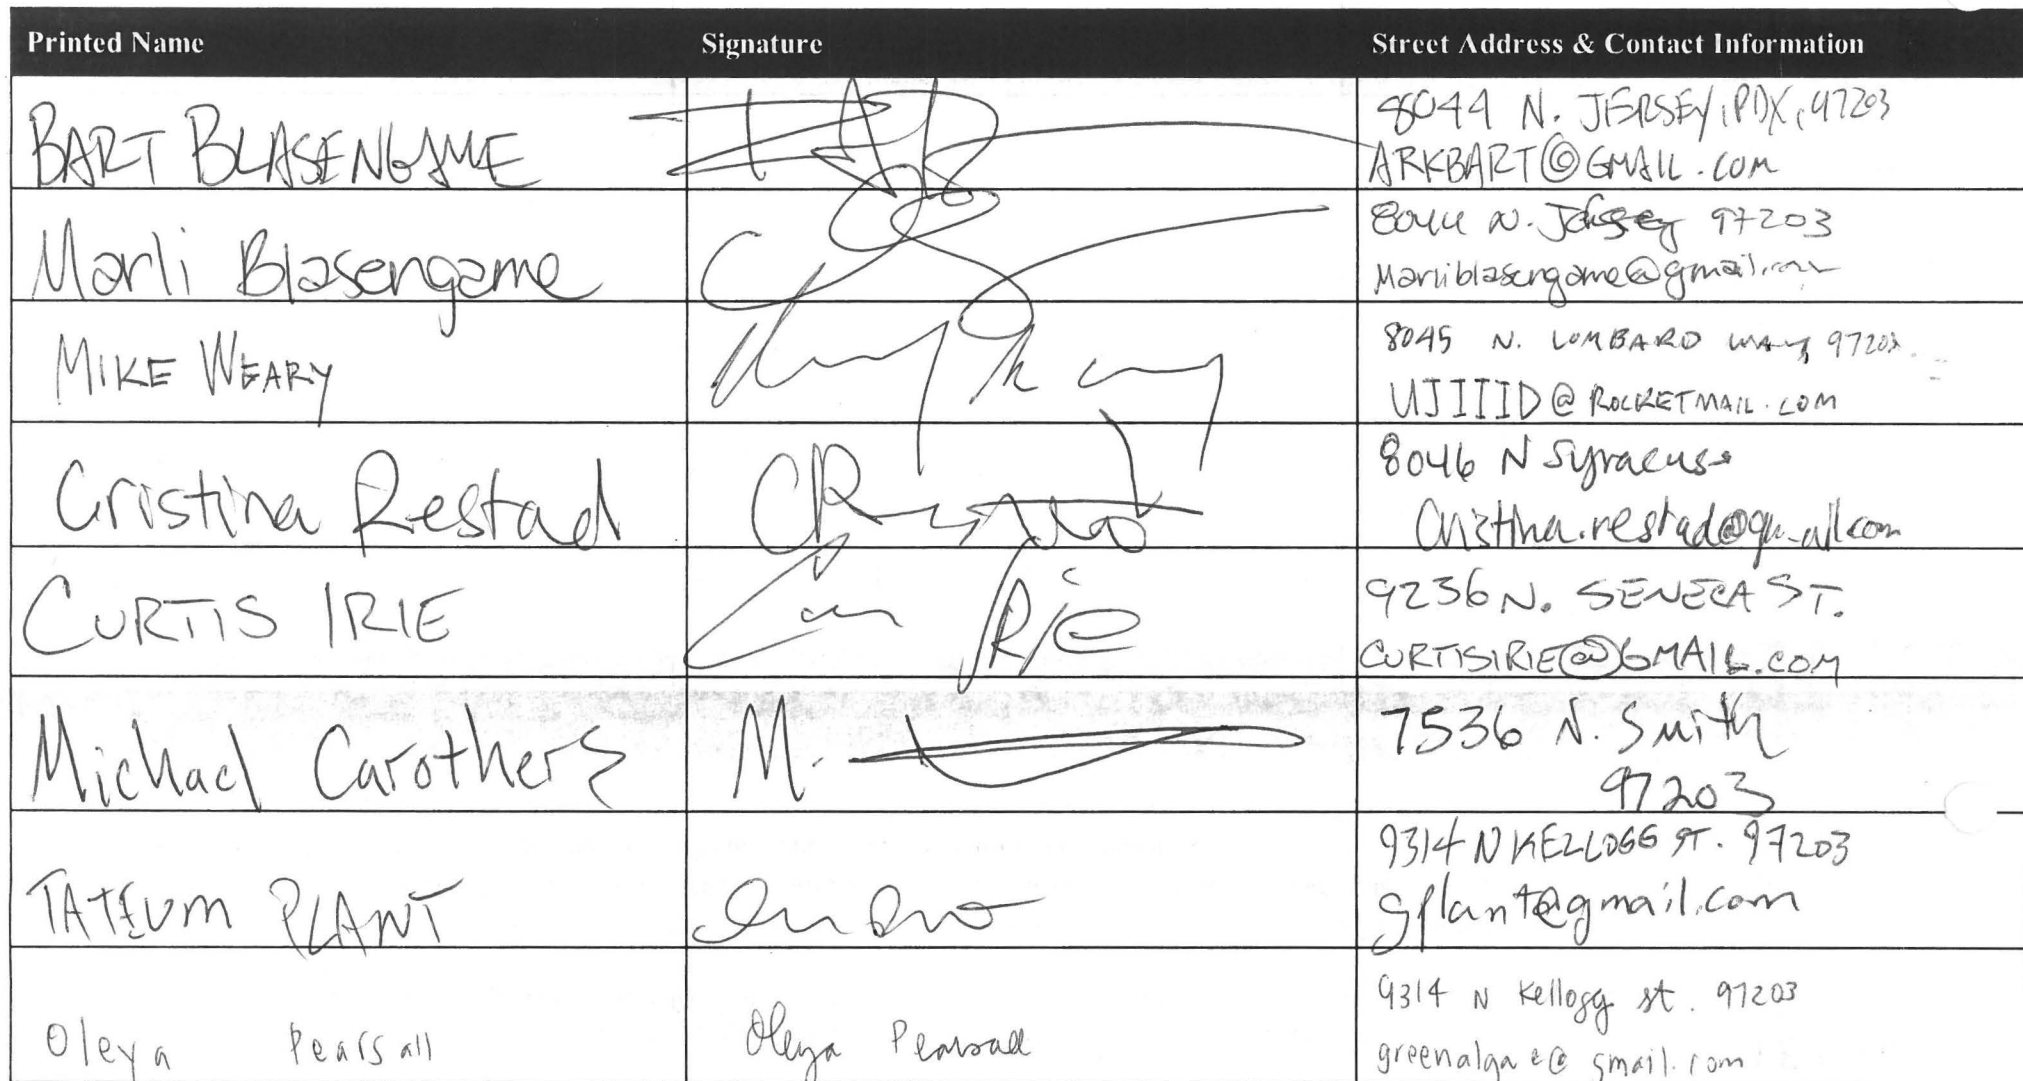 Printed Name Signature Street Address & Contact Information
BART BLASENGAME 8044 N. JERSEY, PDX, 97203
ARKBART@GMAIL.COM
Marli Blasengame 8044 N. Jersey 97203
Marliblasengame@gmail.com
MIKE WEARY 8045 N. LOMBARD WAY 97203
UJIIID@ROCKETMAIL.COM
Cristina Restad 8046 N Syracuse
Cristina.restad@gmail.com
CURTIS IRIE 9236 N. SENECA ST.
CURTISIRIE@GMAIL.COM
Michael Carothers M. 7536 N. Smith
97203
TATEUM PLANT 9314 N KELLOGG ST. 97203
gplant@gmail.com
Oleya Pearsall Oleya Pearsall 9314 N Kellogg st. 97203
greenalgae@gmail.com